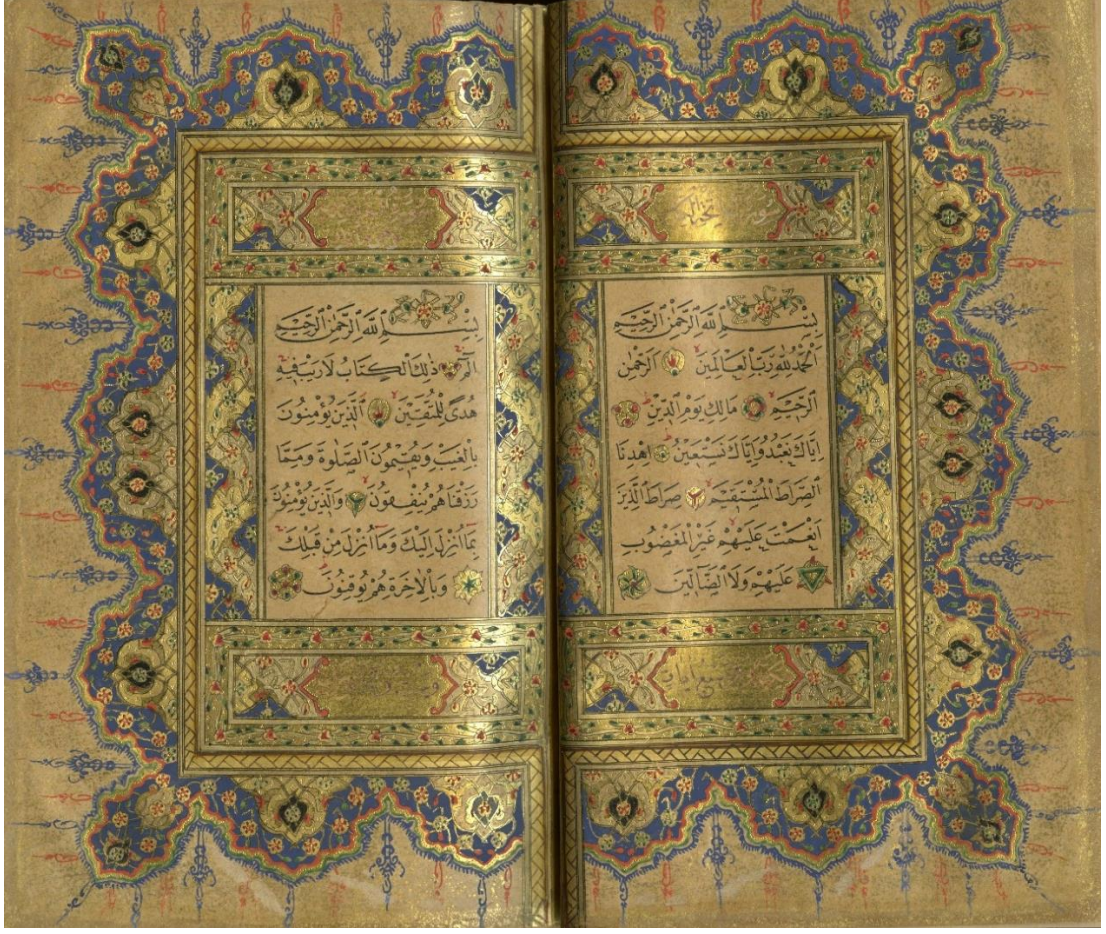 بِسْمِ اللهِ الرَّحْمٰنِ الرَّحِيمِ
اَلْحَمْدُ لِلّٰهِ رَبِّ الْعَالَمِينَ الرَّحْمٰنِ
الرَّحِيمِ مَالِكِ يَوْمِ الدِّينِ
اِيَّاكَ نَعْبُدُ وَاِيَّاكَ نَسْتَعِينُ اِهْدِنَا
الصِّرَاطَ الْمُسْتَقِيمَ صِرَاطَ الَّذِينَ
اَنْعَمْتَ عَلَيْهِمْ غَيْرِ الْمَغْضُوبِ
عَلَيْهِمْ وَلَا الضَّالِّينَ
سبع ايات
بِسْمِ اللهِ الرَّحْمٰنِ الرَّحِيمِ
الٓمٓ ذٰلِكَ الْكِتَابُ لَا رَيْبَ فِيهِ
هُدًى لِلْمُتَّقِينَ اَلَّذِينَ يُؤْمِنُونَ
بِالْغَيْبِ وَيُقِيمُونَ الصَّلٰوةَ وَمِمَّا
رَزَقْنَاهُمْ يُنْفِقُونَ وَالَّذِينَ يُؤْمِنُونَ
بِمَٓا اُنْزِلَ اِلَيْكَ وَمَٓا اُنْزِلَ مِنْ قَبْلِكَ
وَبِالْاٰخِرَةِ هُمْ يُوقِنُونَ